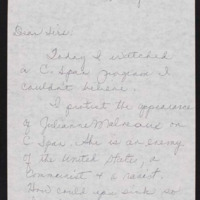 Dear Sirs:
Today I watched
a C. Span program I
couldn't believe.
I protest the appearance
of Julianne Malveaux on
C Span. She is an enemy
of the United States, a
Communist & a racist.
How could you sink so